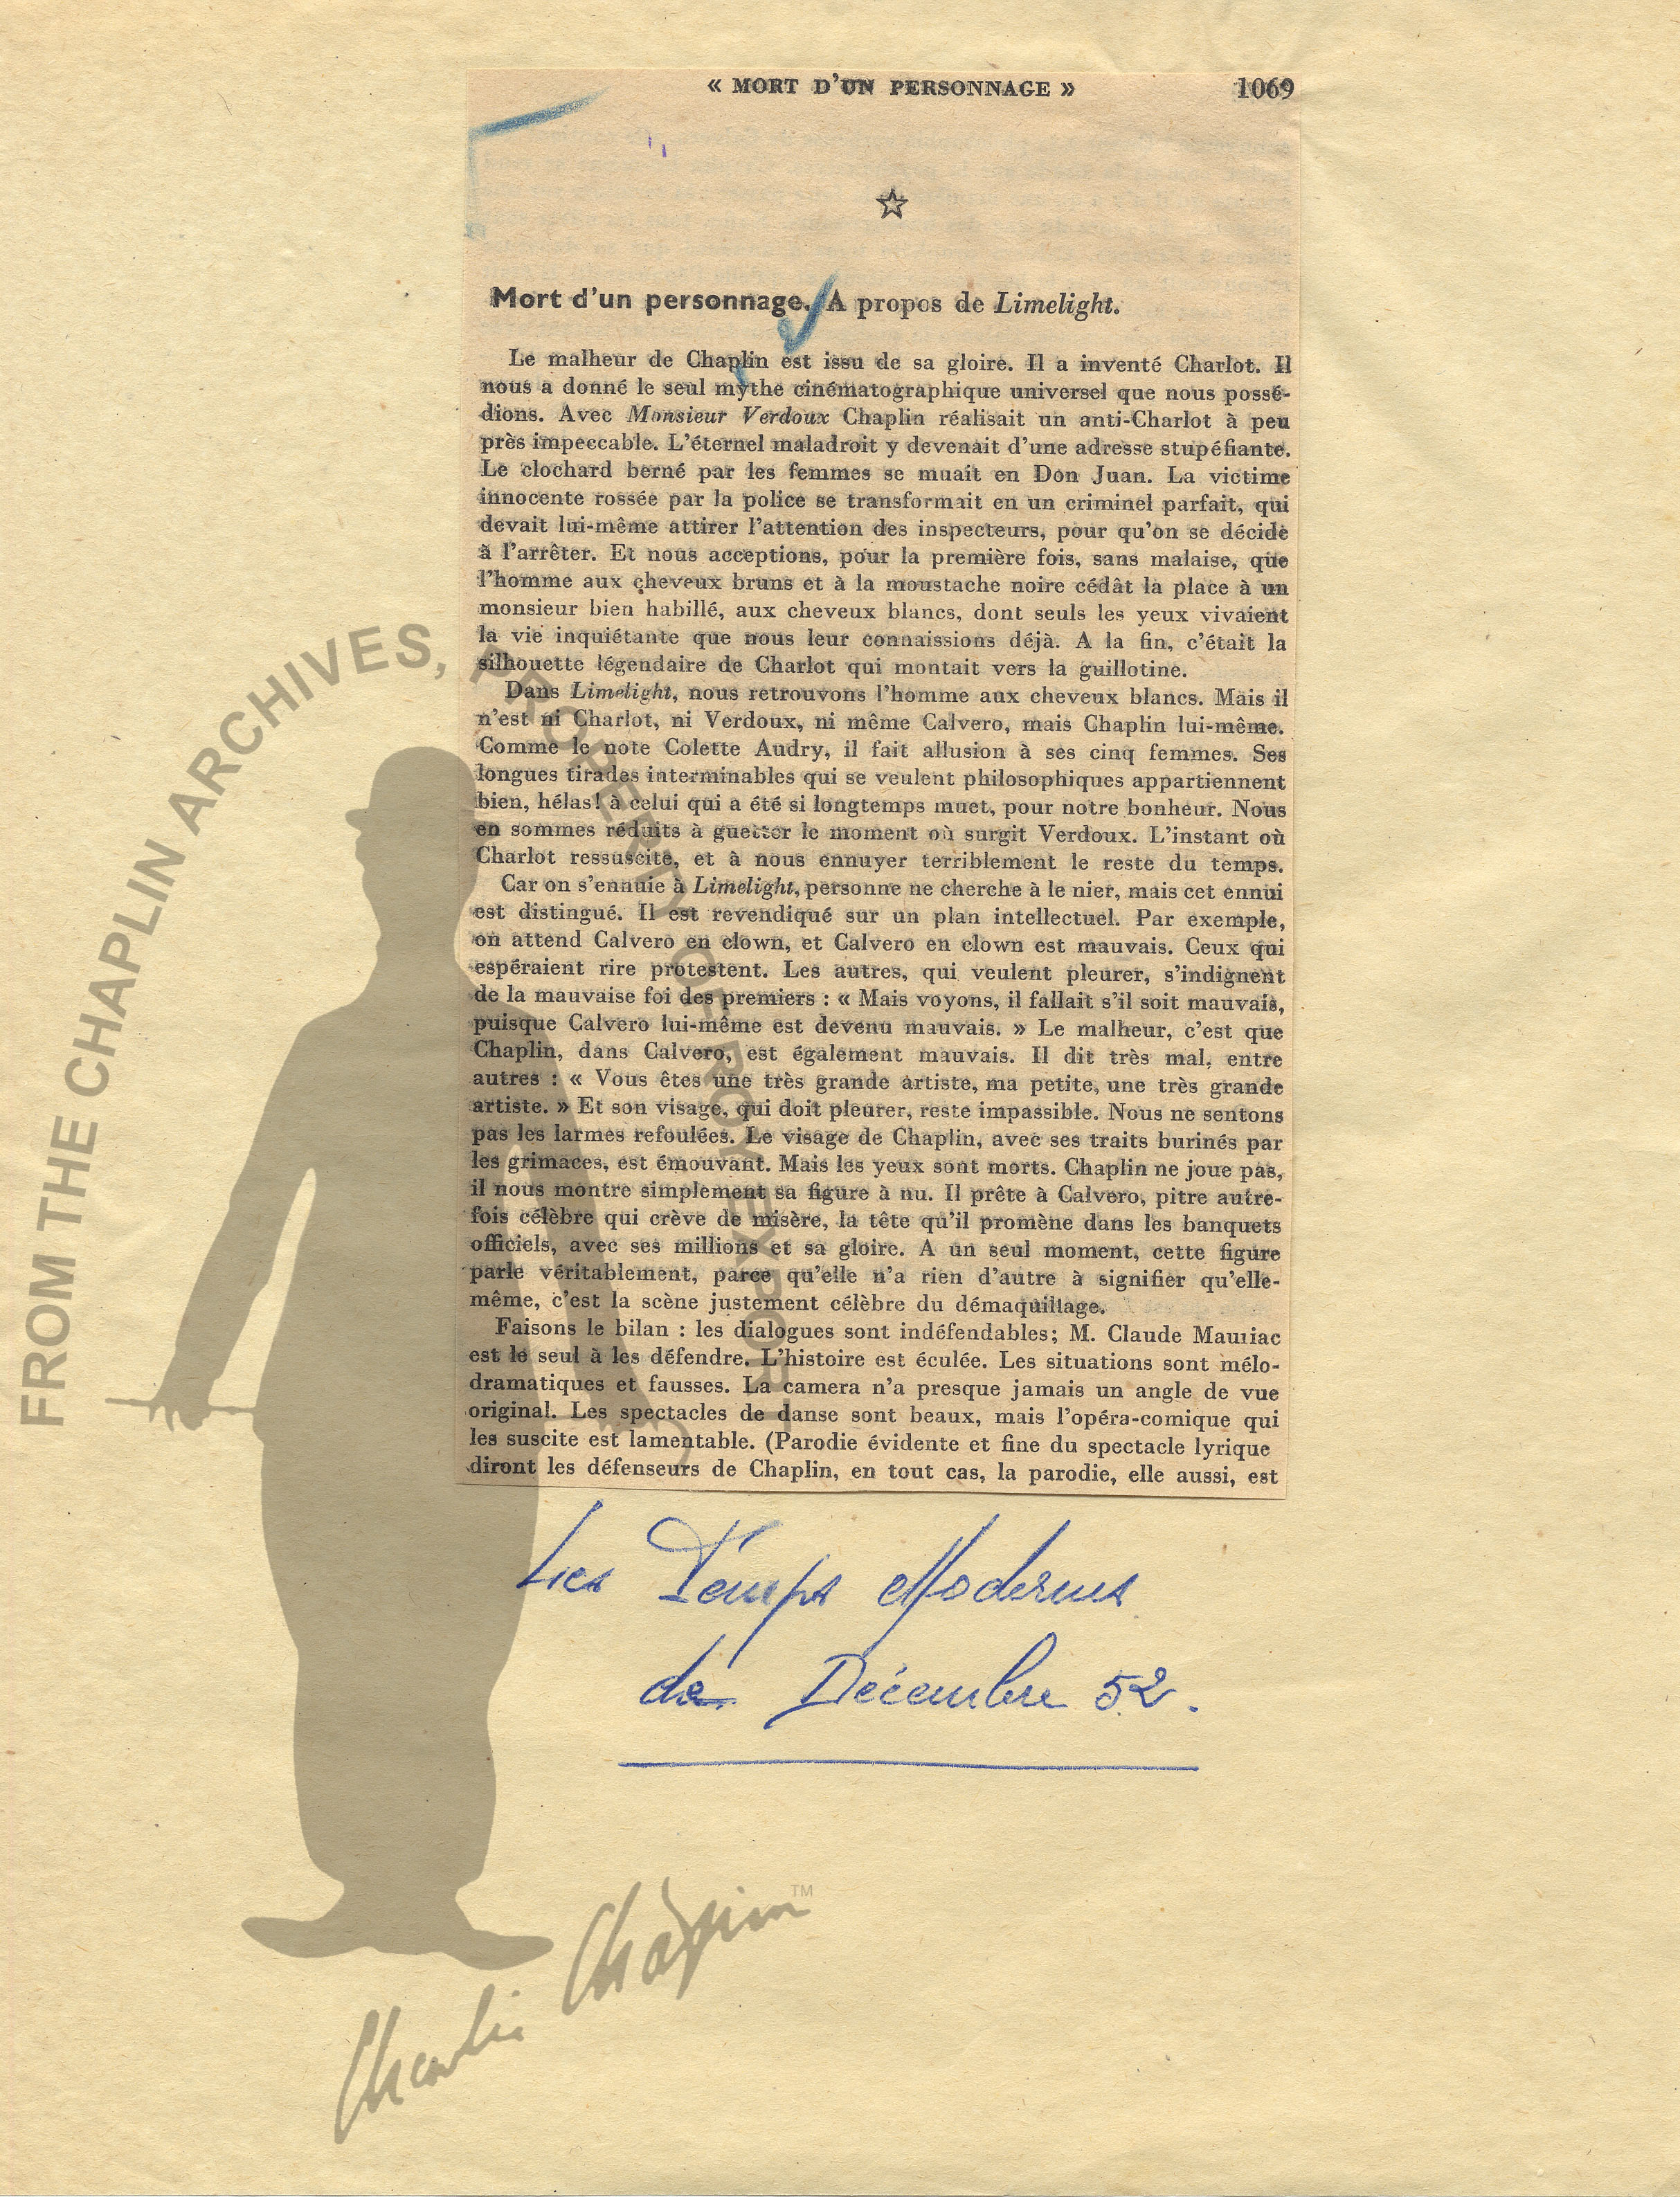 « MORT D'UN PERSONNAGE » 1069
☆
Mort d'un personnage. A propos de Limelight.
Le malheur de Chaplin est issu de sa gloire. Il a inventé Charlot. Il
nous a donné le seul mythe cinématographique universel que nous possé-
dions. Avec Monsieur Verdoux Chaplin réalisait un anti-Charlot à peu
près impeccable. L'éternel maladroit y devenait d'une adresse stupéfiante.
Le clochard berné par les femmes se muait en Don Juan. La victime
innocente rossée par la police se transformait en un criminel parfait, qui
devait lui-même attirer l'attention des inspecteurs, pour qu'on se décide
à l'arrêter. Et nous acceptions, pour la première fois, sans malaise, que
l'homme aux cheveux bruns et à la moustache noire cédât la place à un
monsieur bien habillé, aux cheveux blancs, dont seuls les yeux vivaient
la vie inquiétante que nous leur connaissions déjà. A la fin, c'était la
silhouette légendaire de Charlot qui montait vers la guillotine.
Dans Limelight, nous retrouvons l'homme aux cheveux blancs. Mais il
n'est ni Charlot, ni Verdoux, ni même Calvero, mais Chaplin lui-même.
Comme le note Colette Audry, il fait allusion à ses cinq femmes. Ses
longues tirades interminables qui se veulent philosophiques appartiennent
bien, hélas! à celui qui a été si longtemps muet, pour notre bonheur. Nous
en sommes réduits à guetter le moment où surgit Verdoux. L'instant où
Charlot ressuscite, et à nous ennuyer terriblement le reste du temps.
Car on s'ennuie à Limelight, personne ne cherche à le nier, mais cet ennui
est distingué. Il est revendiqué sur un plan intellectuel. Par exemple,
on attend Calvero en clown, et Calvero en clown est mauvais. Ceux qui
espéraient rire protestent. Les autres, qui veulent pleurer, s'indignent
de la mauvaise foi des premiers : « Mais voyons, il fallait s'il soit mauvais,
puisque Calvero lui-même est devenu mauvais. » Le malheur, c'est que
Chaplin, dans Calvero, est également mauvais. Il dit très mal, entre
autres : « Vous êtes une très grande artiste, ma petite, une très grande
artiste. » Et son visage, qui doit pleurer, reste impassible. Nous ne sentons
pas les larmes refoulées. Le visage de Chaplin, avec ses traits burinés par
les grimaces, est émouvant. Mais les yeux sont morts. Chaplin ne joue pas,
il nous montre simplement sa figure à nu. Il prête à Calvero, pitre autre-
fois célèbre qui crève de misère, la tête qu'il promène dans les banquets
officiels, avec ses millions et sa gloire. A un seul moment, cette figure
parle véritablement, parce qu'elle n'a rien d'autre à signifier qu'elle-
même, c'est la scène justement célèbre du démaquillage.
Faisons le bilan : les dialogues sont indéfendables; M. Claude Mauriac
est le seul à les défendre. L'histoire est éculée. Les situations sont mélo-
dramatiques et fausses. La camera n'a presque jamais un angle de vue
original. Les spectacles de danse sont beaux, mais l'opéra-comique qui
les suscite est lamentable. (Parodie évidente et fine du spectacle lyrique
diront les défenseurs de Chaplin, en tout cas, la parodie, elle aussi, est
Les Temps Modernes
de Décembre 52.
FROM THE CHAPLIN ARCHIVES, PROPERTY OF ROY EXPORT
Charlie Chaplin TM